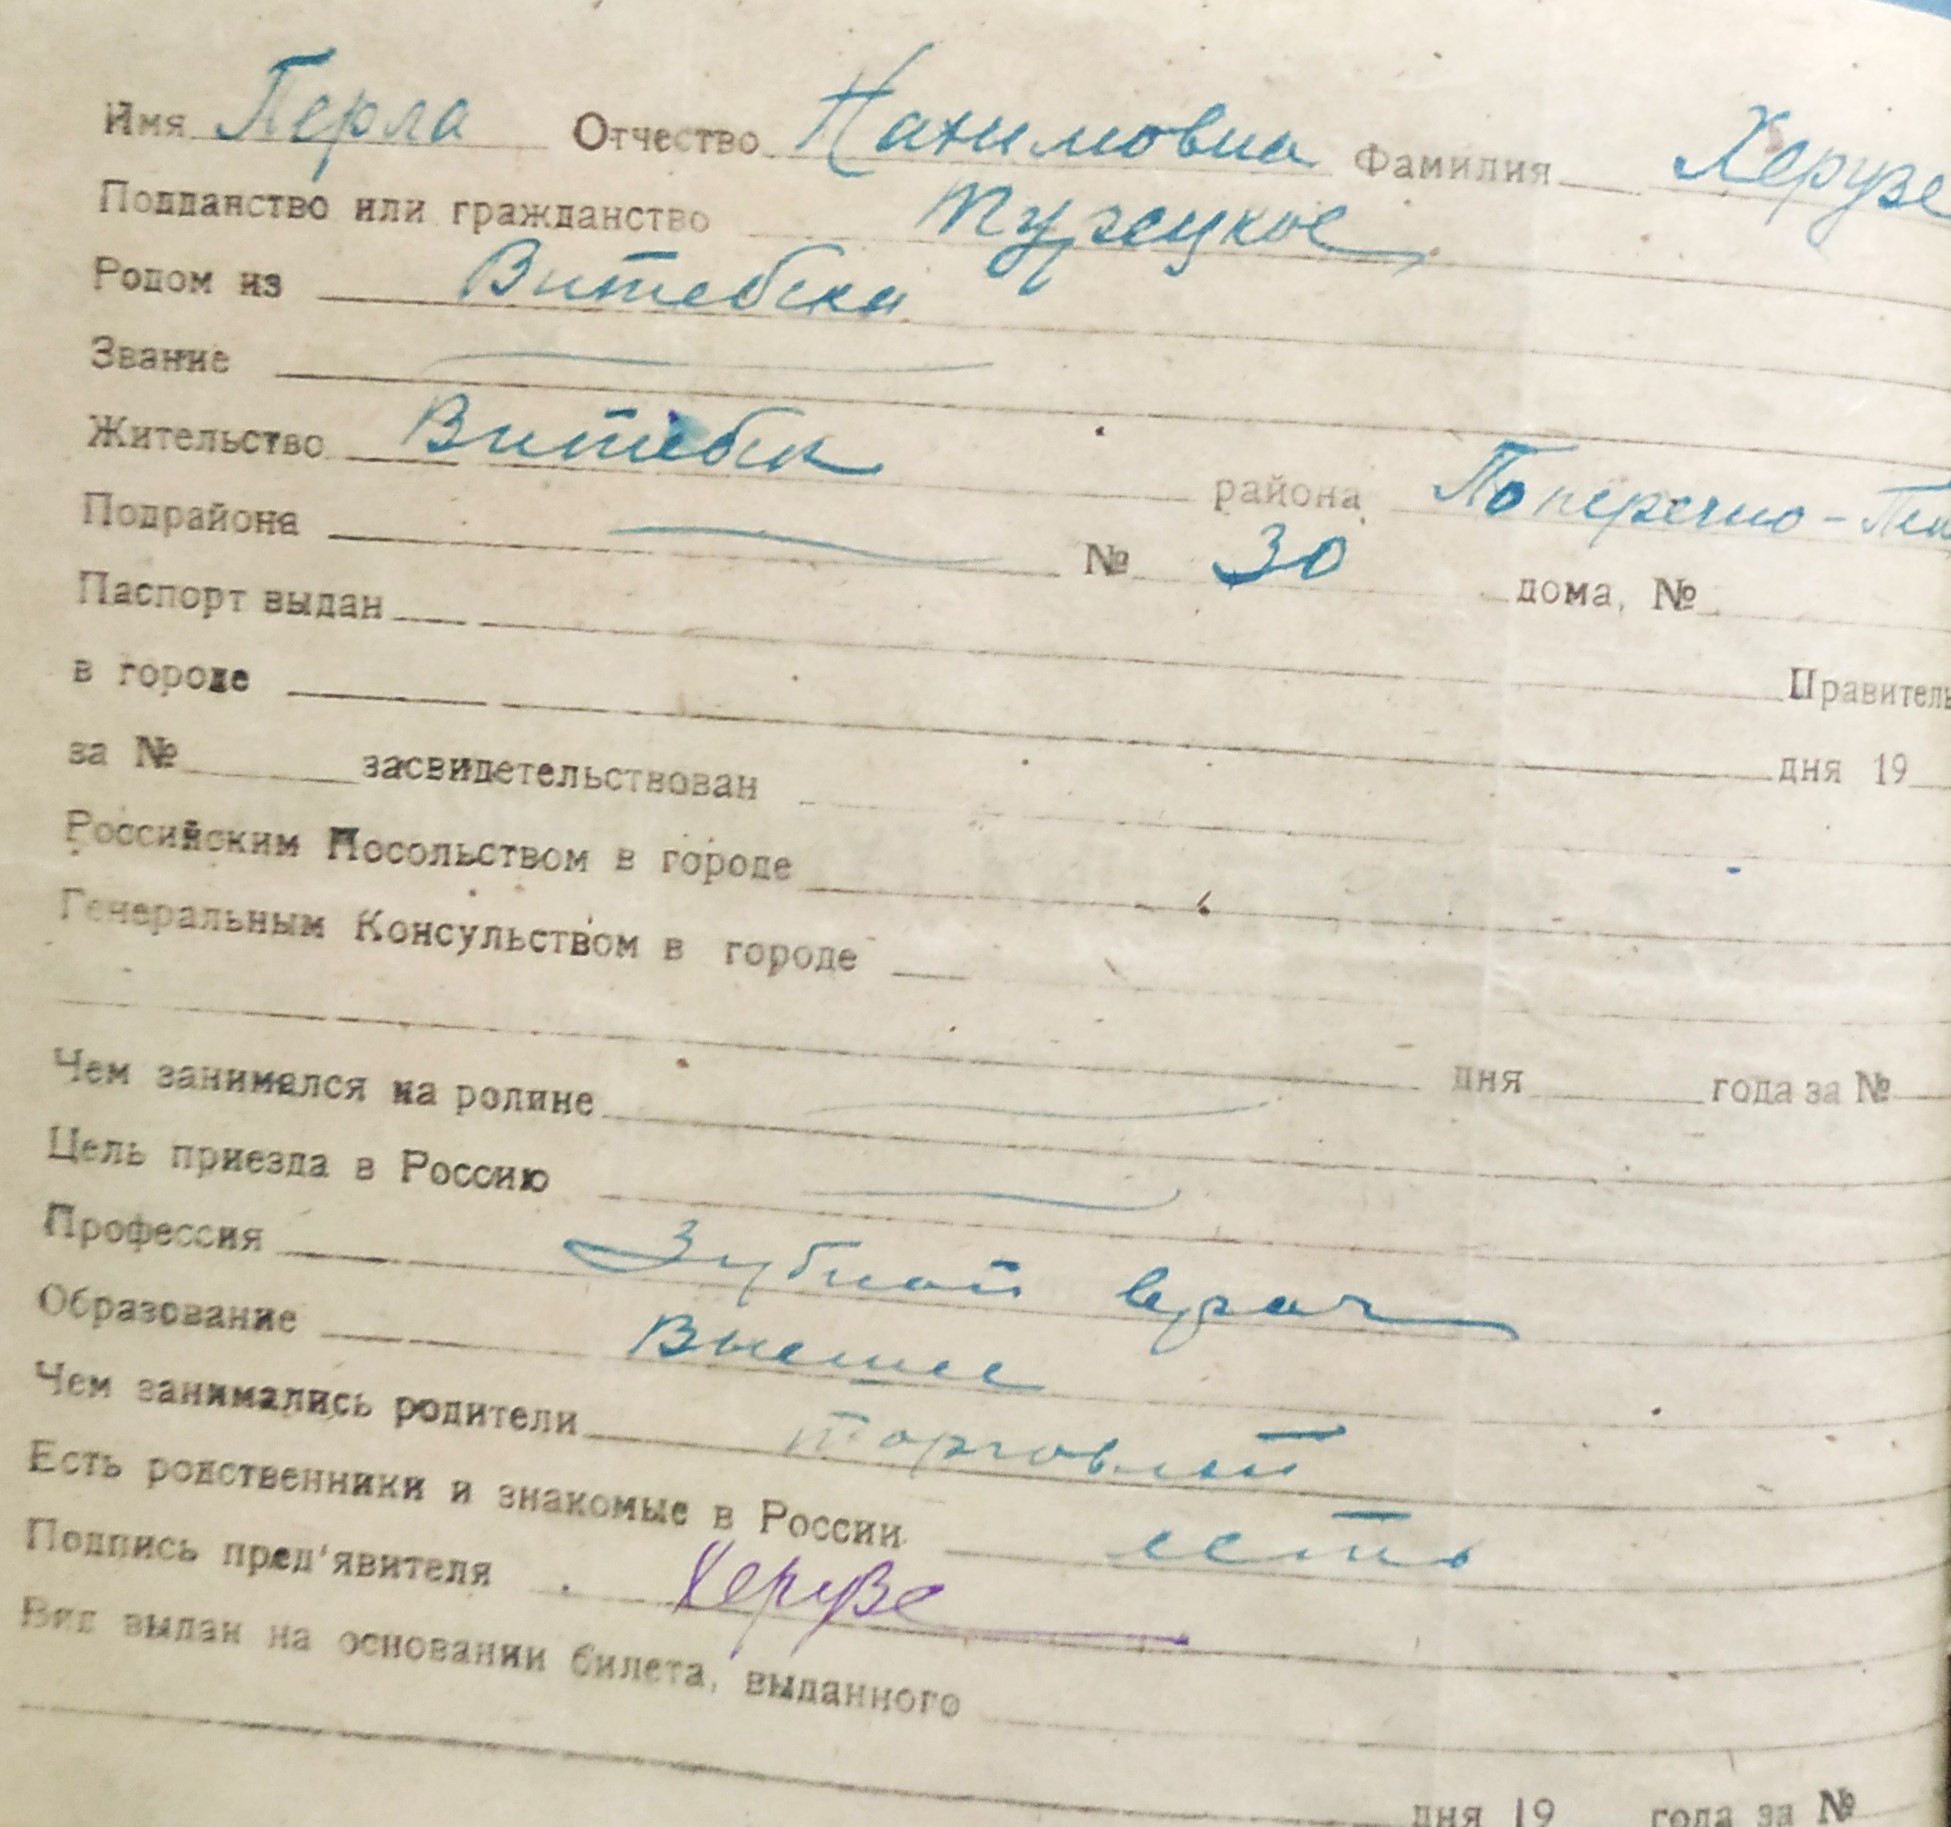 Имя Перла Отчество Нахимовна Фамилия Херузе
Подданство или гражданство Турецкое
Родом из Витебска
Звание
Жительство Витебск района Поперечно-
Подрайона № 30 дома, №
Паспорт выдан Правитель
в городе дня 19
за № засвидетельствован
Российским Посольством в городе
Генеральным Консульством в городе
дня года за №
Чем занимался на родине
Цель приезда в Россию
Профессия Зубной врач
Образование Высшее
Чем занимались родители торговлей
Есть родственники и знакомые в России есть
Подпись пред'явителя Херузе
Вид выдан на основании билета, выданного
дня 19 года за №